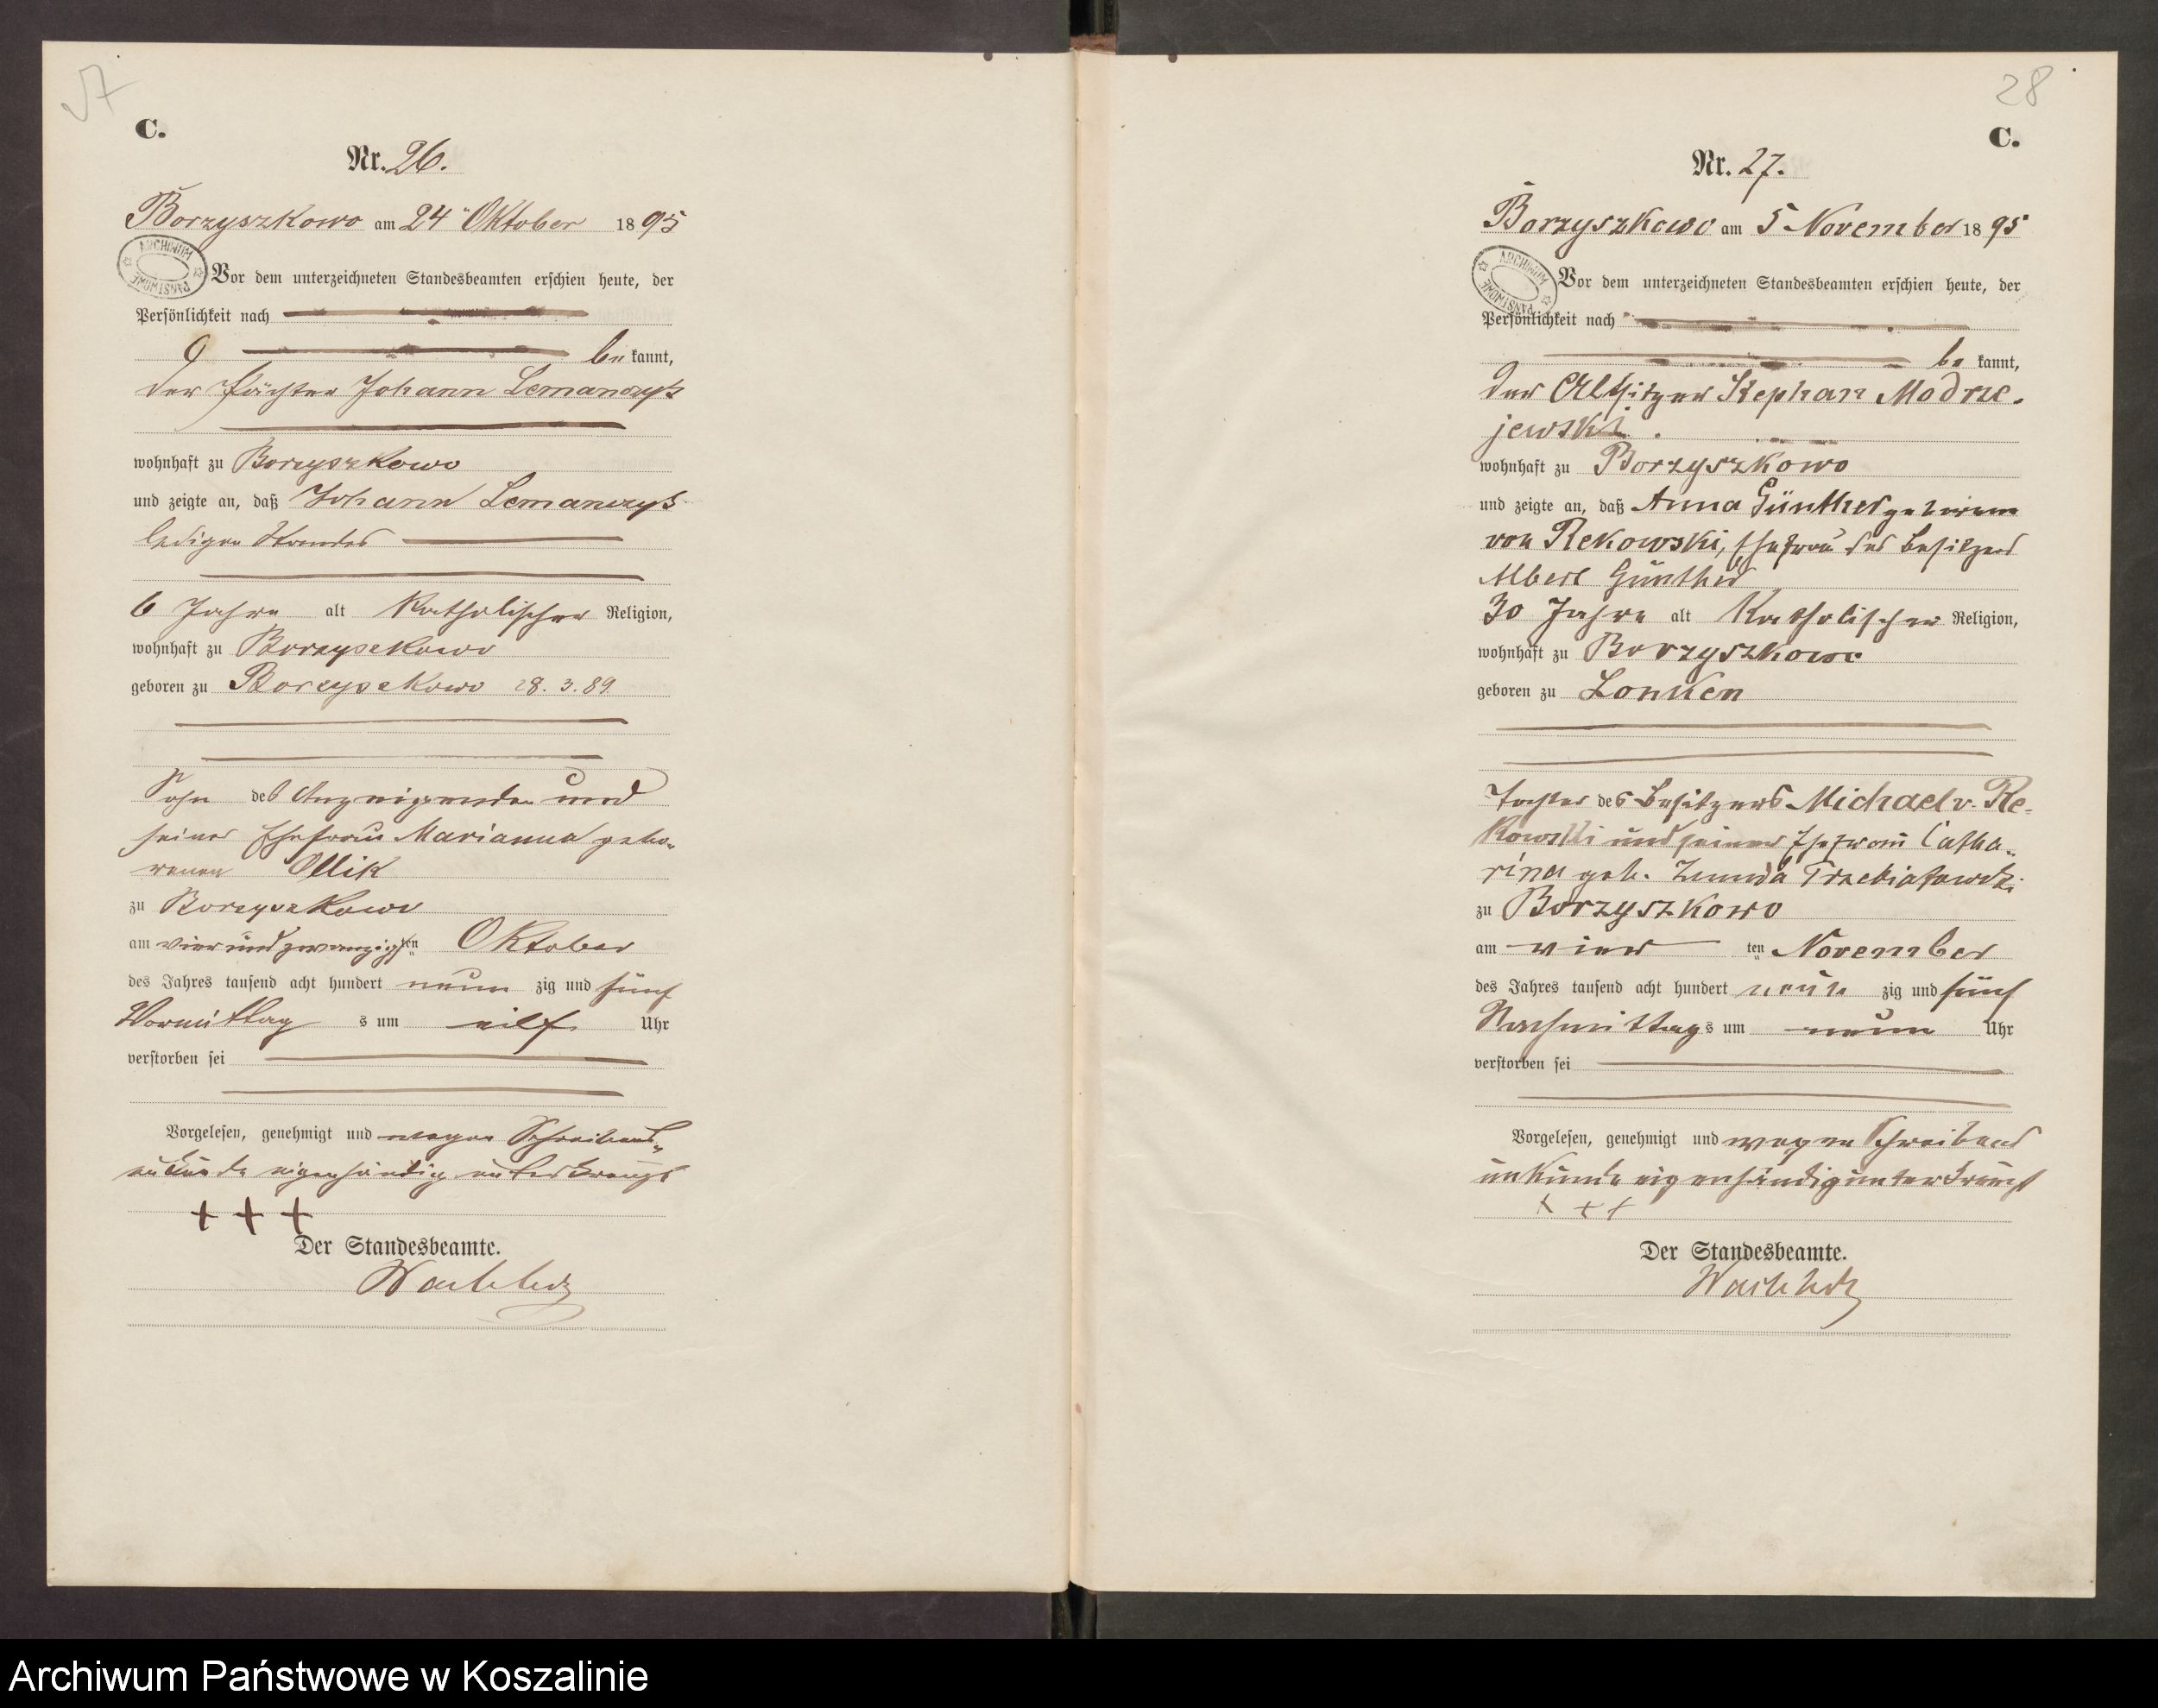 C.
Nr. 26.
Borzyszkowo am 24ᵗ Oktober 1895
ARCHIWUM PAŃSTWOWE
Vor dem unterzeichneten Standesbeamten erschien heute, der
Persönlichkeit nach
be kannt,
der Pächter Johann Lemanczyk
wohnhaft zu Borzyszkowo
und zeigte an, daß Johann Lemanczyk
ledigen Standes
6 Jahre alt Katholischer Religion,
wohnhaft zu Borzyszkowo
geboren zu Borzyszkowo 28. 3. 89
Sohn des Anzeigenden und
seiner Ehefrau Marianna gebo-
renen Ollik
zu Borzyszkowo
am vier und zwanzigsten Oktober
des Jahres tausend acht hundert neun zig und fünf
Vormittag s um eilf Uhr
verstorben sei
Vorgelesen, genehmigt und wegen Schreibens-
unkunde eigenhändig unterkreuzt
+ + +
Der Standesbeamte.
28
C.
Nr. 27.
Borzyszkowo am 5 November 1895
ARCHIWUM PAŃSTWOWE
Vor dem unterzeichneten Standesbeamten erschien heute, der
Persönlichkeit nach
be kannt,
der Altsitzer Stephan Modrze-
jewski.
wohnhaft zu Borzyszkowo
und zeigte an, daß Anna Günther geborene
von Rekowski, Ehefrau des Besitzers
Albert Günther
30 Jahre alt Katholischer Religion,
wohnhaft zu Borzyszkowo
geboren zu Lonken
Tochter des Besitzers Michael v. Re-
kowski und seiner Ehefrau Catha-
rina geb. Trzebiatowski
zu Borzyszkowo
am vier ten November
des Jahres tausend acht hundert neun zig und fünf
Nachmittags um neun Uhr
verstorben sei
Vorgelesen, genehmigt und wegen Schreibens
unkunde eigenhändig unterkreuzt
+ + +
Der Standesbeamte.
Archiwum Państwowe w Koszalinie